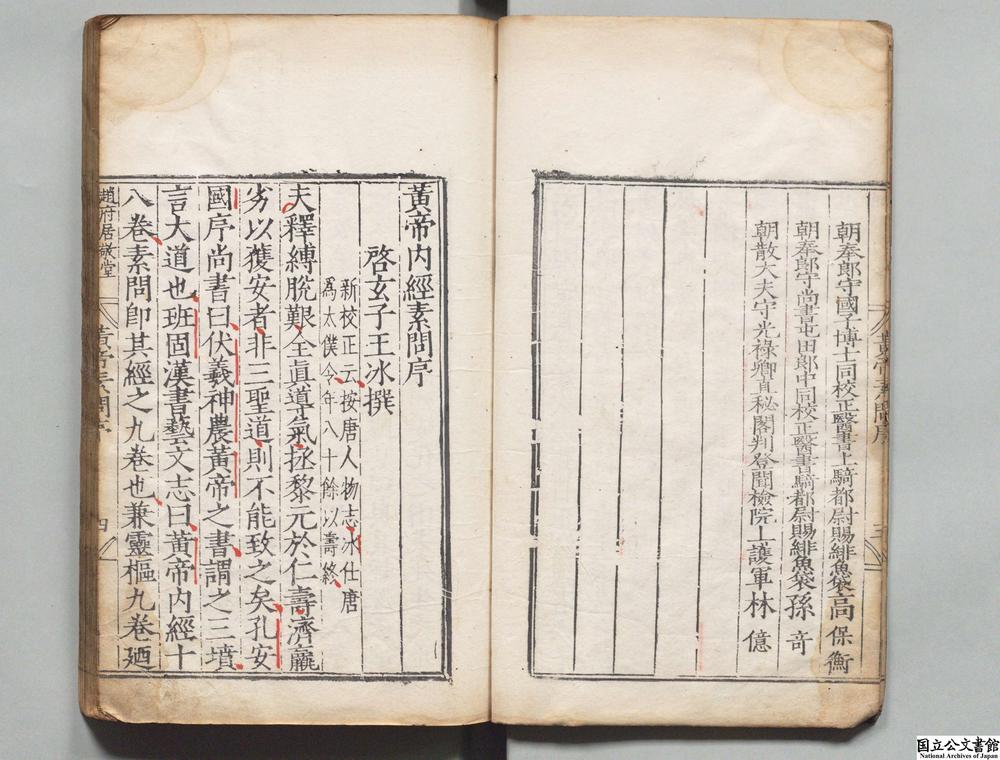 朝奉郎守國子博士同校正醫書上騎都尉賜緋魚袋高保衡
朝奉郎守尚書屯田郎中同校正醫書騎都尉賜緋魚袋孫奇
朝散大夫守光祿卿直秘閣判登聞檢院上護軍林億
黃帝素問序
三
黃帝內經素問序
啓玄子王冰撰
新校正云按唐人物志冰仕唐
爲太僕令年八十餘以壽終
夫釋縛脫艱全眞導氣拯黎元於仁壽濟羸
劣以獲安者非三聖道則不能致之矣孔安
國序尚書曰伏羲神農黃帝之書謂之三墳
言大道也班固漢書藝文志曰黃帝內經十
八卷素問卽其經之九卷也兼靈樞九卷廼
趙府居敬堂
黃帝素問序
四
国立公文書館
National Archives of Japan